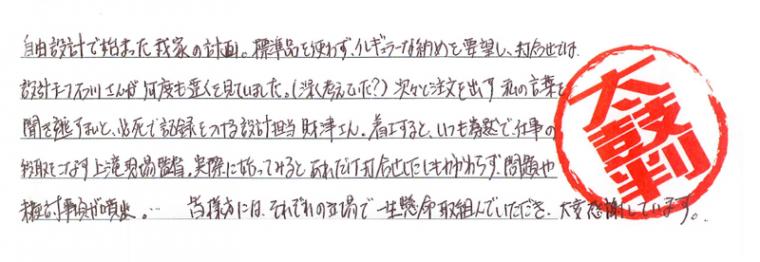 自由設計で始まった我家の計画。標準品を使わず、イレギュラーな納めを要望し、打合せでは
設計チーフ石川さんが何度も空を見ていました。(深く考えていた?) 次々と注文を出す私の言葉を
聞き逃すまいと、必死で記録をつける設計担当財津さん。着工すると、いつも笑顔で仕事の
段取をこなす上滝現場監督。実際に始ってみるとあれだけ打合せしたにもかかわらず、問題や
検討事項が噴出。… 皆様方には、それぞれの立場で一生懸命取組んでいただき、大変感謝しています。
太鼓判